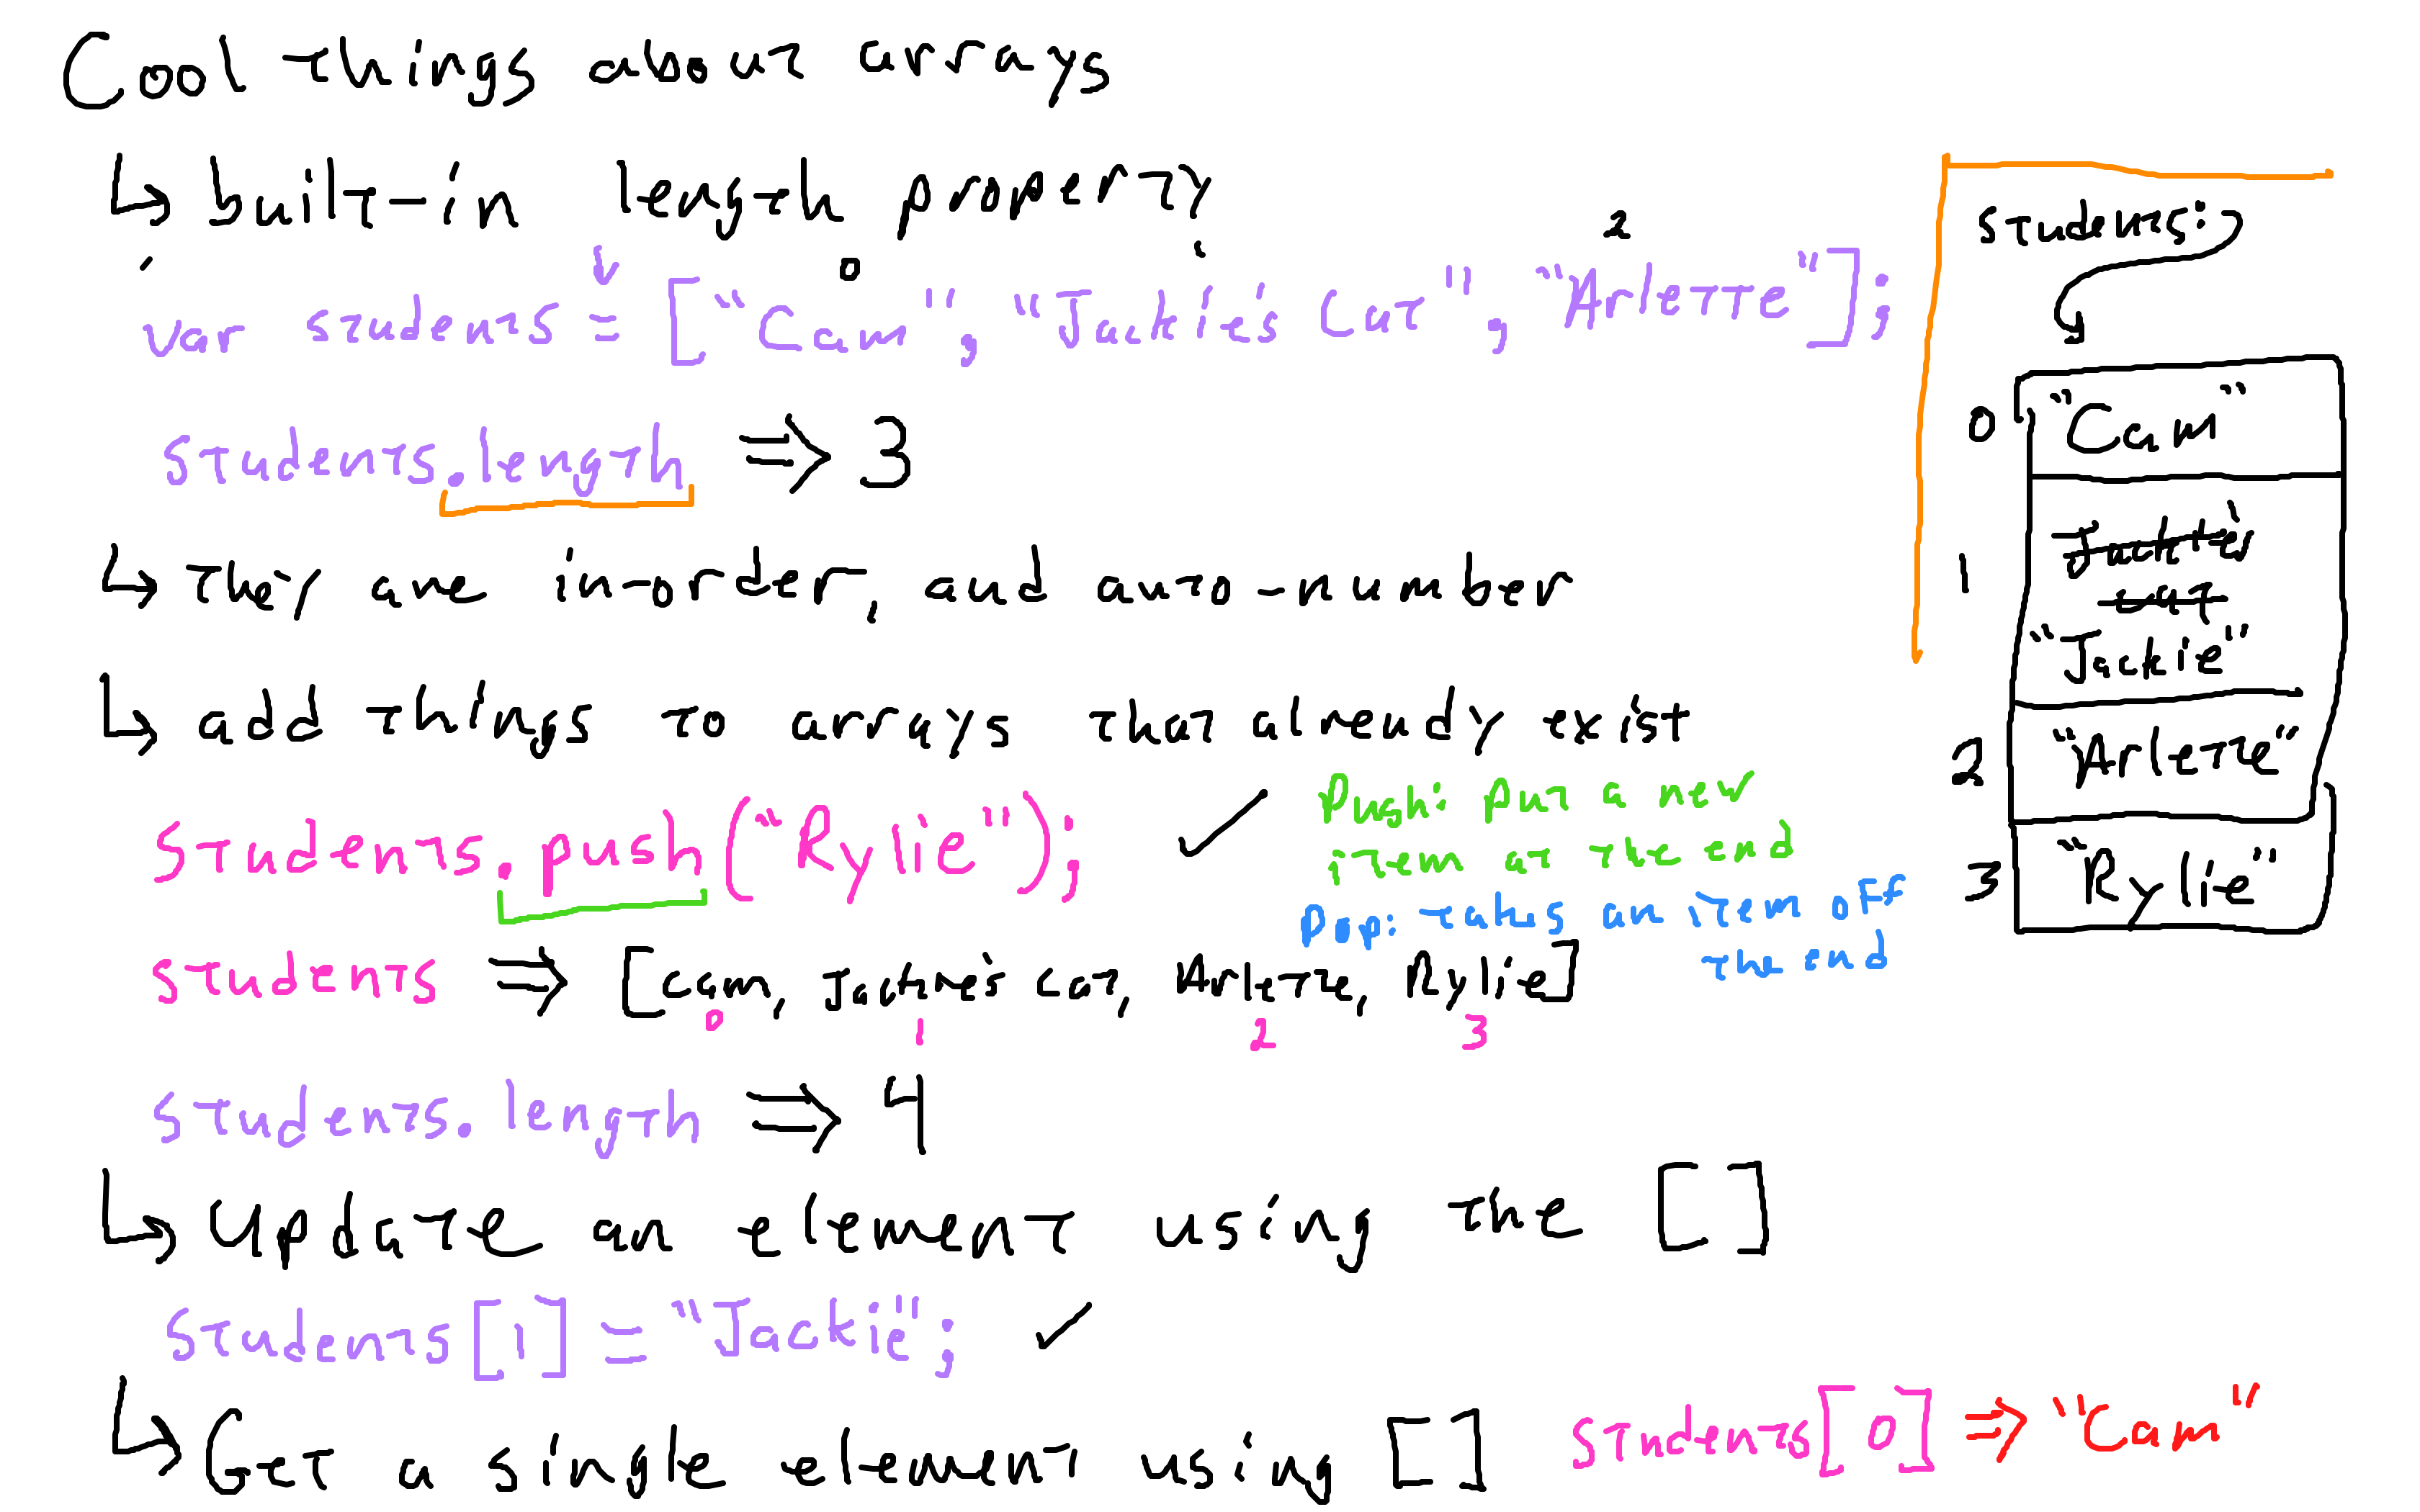 Cool things about arrays
↳ built-in length property
0 1 2
var students = ["Cam", "Jackie's Cat", "Arlette"];
students.length ⇒ 3
↳ They are in-order, and auto-number
↳ add things to arrays that already exist
students.push("Rylie"); ✓
Push: put a new
item at the end
Pop: takes an item off
the end
students ⇒ [Cam, Jackie's cat, Arlette, Rylie]
0 1 2 3
students.length ⇒ 4
↳ Update an element using the []
students[1] = "Jackie"; ✓
↳ Get a single element using []
students[0] ⇒ "Cam"
students:
0 "Cam"
1 Jackie's
cat
"Jackie"
2 "Arlette"
3 "Rylie"